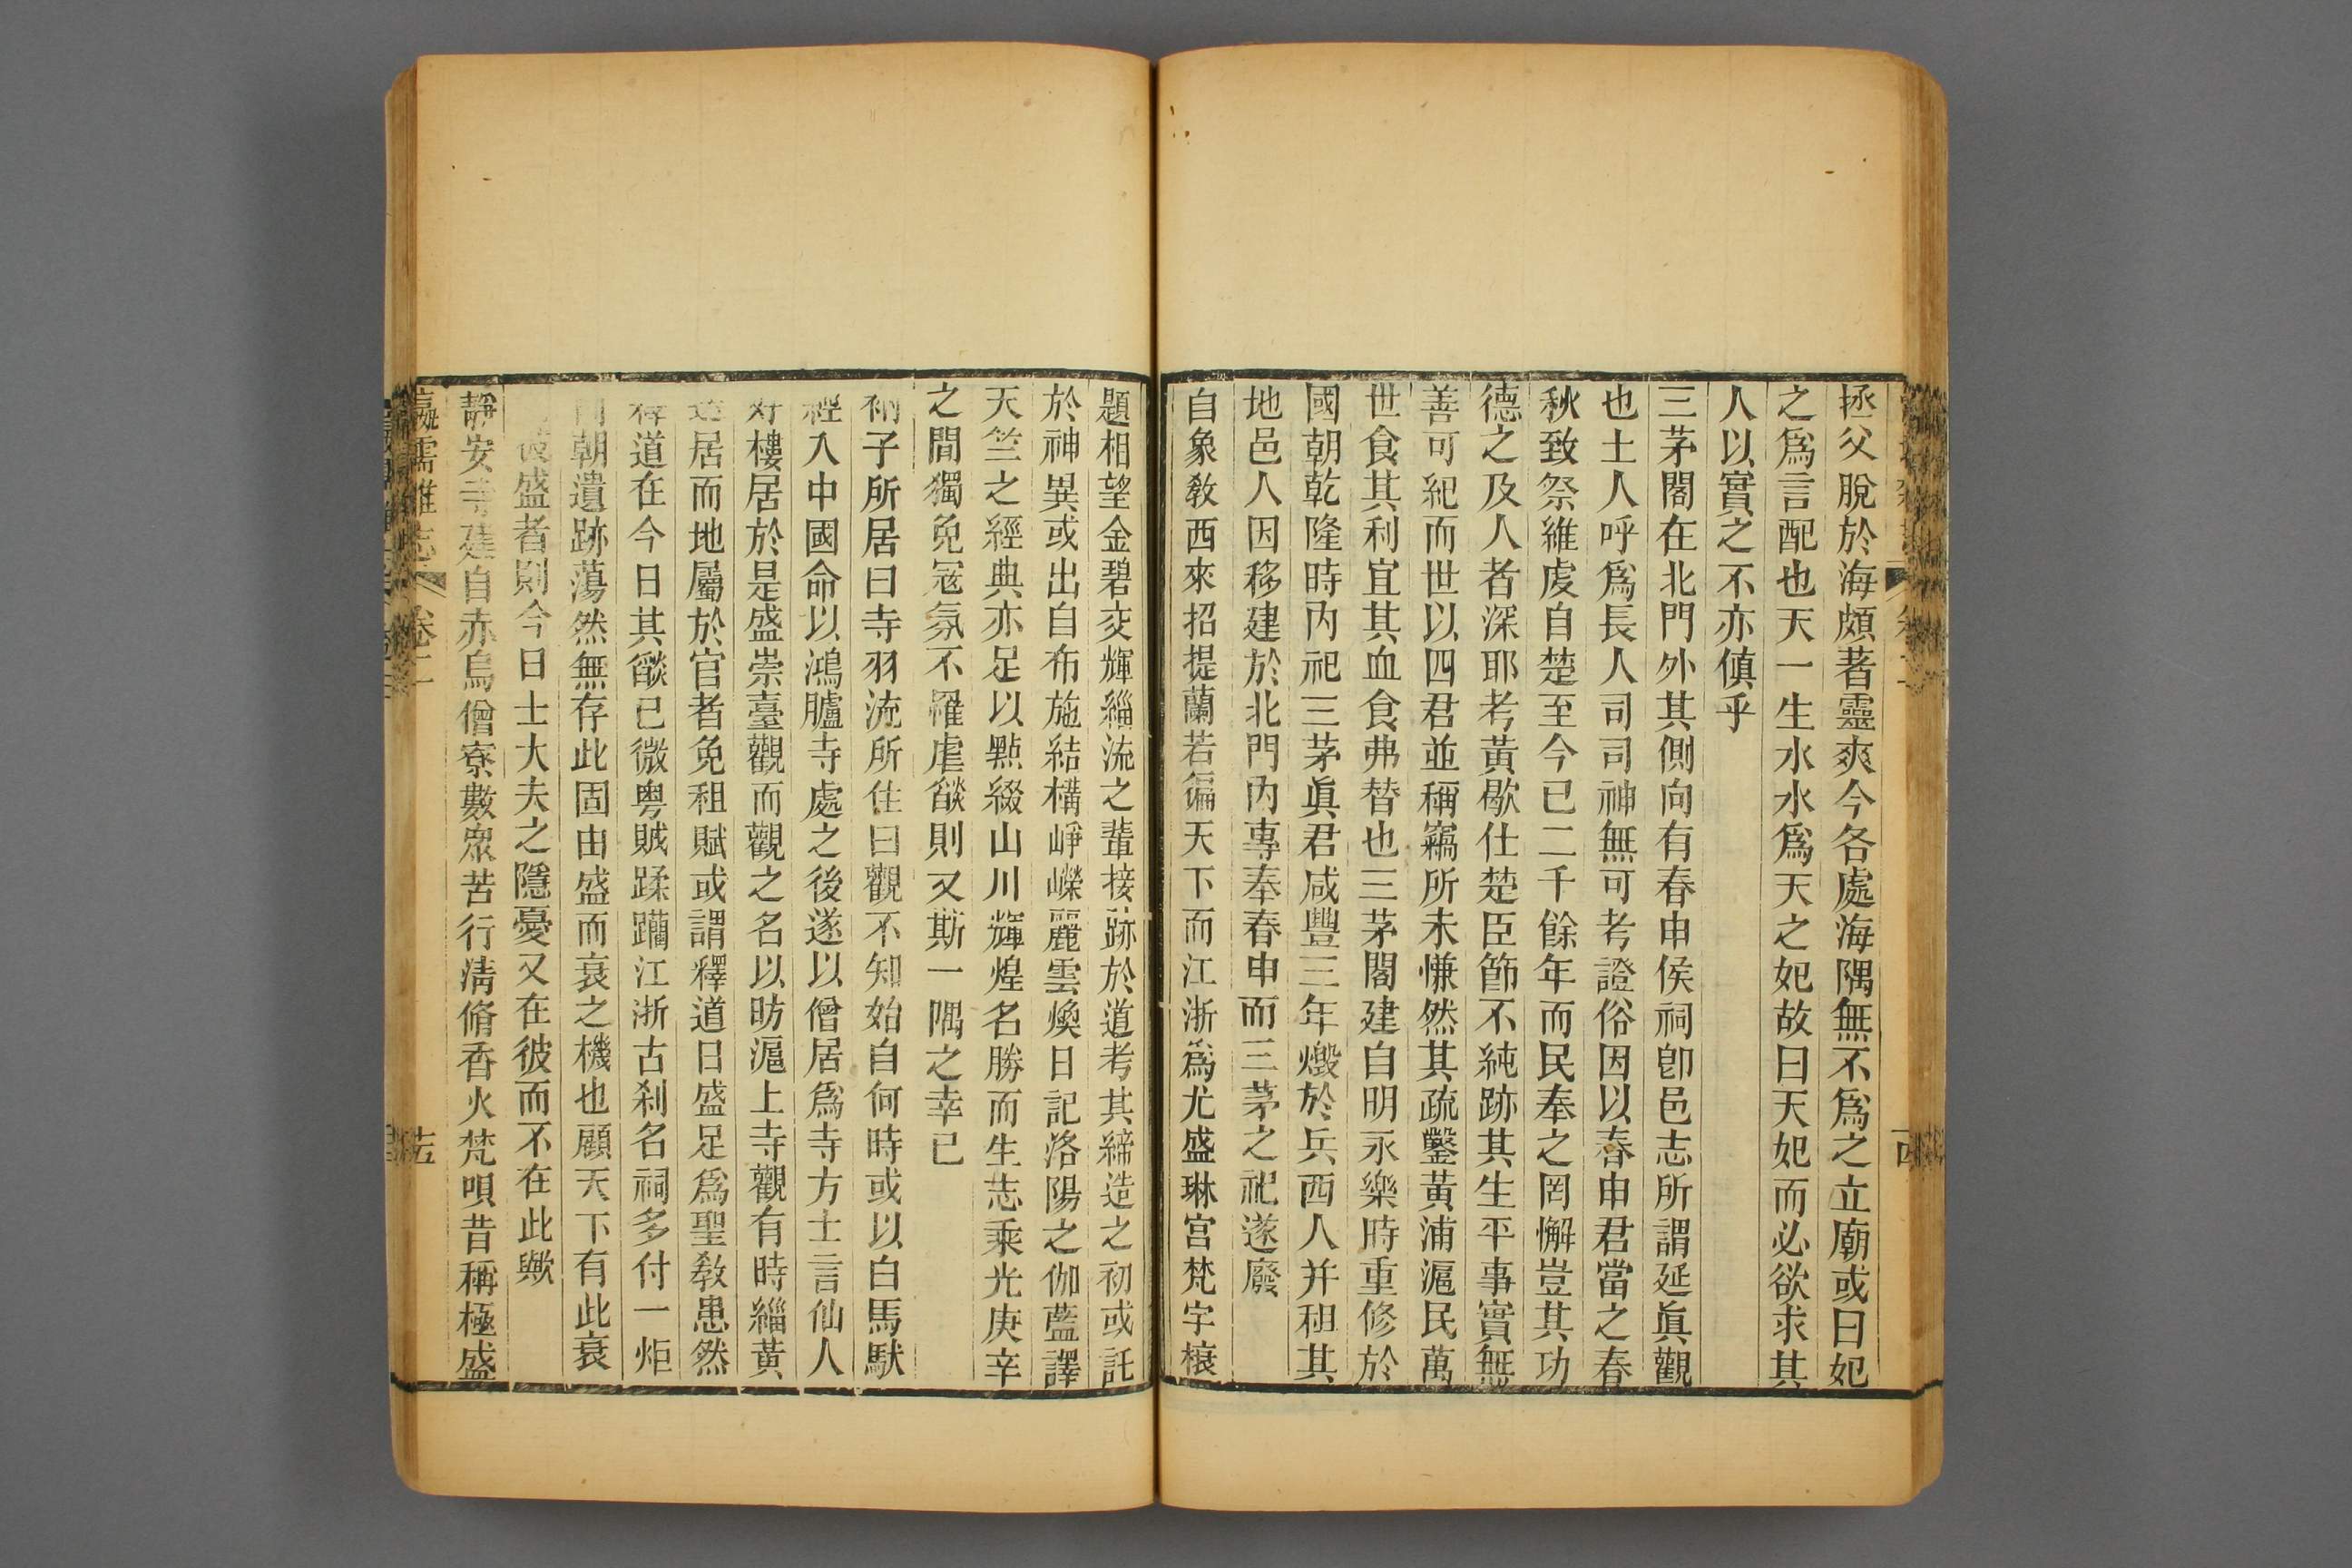 拯父脫於海頗著靈爽今各處海隅無不爲之立廟或曰妃
之爲言配也天一生水水爲天之妃故曰天妃而必欲求其
人以實之不亦傎乎
三茅閣在北門外其側向有春申侯祠卽邑志所謂延眞觀
也土人呼爲長人司司神無可考證俗因以春申君當之春
秋致祭維虔自楚至今已二千餘年而民奉之罔懈豈其功
德之及人者深耶考黃歇仕楚臣節不純跡其生平事實無
善可紀而世以四君並稱竊所未慊然其疏鑿黃浦滬民萬
世食其利宜其血食弗替也三茅閣建自明永樂時重修於
國朝乾隆時內祀三茅眞君咸豐三年燬於兵西人并租其
地邑人因移建於北門內專奉春申而三茅之祀遂廢
自象敎西來招提蘭若徧天下而江浙爲尤盛琳宮梵宇榱
題相望金碧交輝緇流之輩接跡於道考其締造之初或託
於神異或出自布施結構崢嶸麗雲煥日記洛陽之伽藍譯
天竺之經典亦足以點綴山川輝煌名勝而生志乘光庚辛
之間獨免寇氛不罹虐燄則又斯一隅之幸已
衲子所居曰寺羽流所住曰觀不知始自何時或以白馬馱
經入中國命以鴻臚寺處之後遂以僧居爲寺方士言仙人
好樓居於是盛崇臺觀而觀之名以昉滬上寺觀有時緇黃
迭居而地屬於官者免租賦或謂釋道日盛足爲聖敎患然
釋道在今日其燄已微粵賊蹂躪江浙古刹名祠多付一炬
朝遺跡蕩然無存此固由盛而衰之機也顧天下有此衰
彼盛者則今日士大夫之隱憂又在彼而不在此歟
靜安寺建自赤烏僧寮數衆苦行淸脩香火梵唄昔稱極盛
瀛壖雜志 卷二 十五